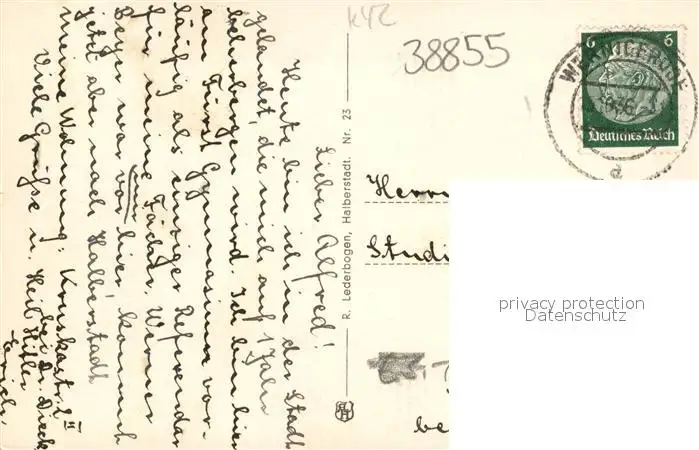 Lieber Alfred!
Heute bin ich in der Stadt
gelandet, die mich auf 1 Jahr
beherbergen wird. Ich bin hier
am Fürst Gymnasium vor-
läufig als einziger Referendar
für meine Fächer. Werner
Beyer war vor hier, kommt
jetzt aber nach Halberstadt.
meine Wohnung:
bei Dr.
Viele Grüsse u. Heil Hitler
Erich.
R. Lederbogen, Halberstadt. Nr. 23
k42
38855
WERNIGERODE
a
6 6
Deutsches Reich
Herrn
Studi
be
privacy protection
Datenschutz